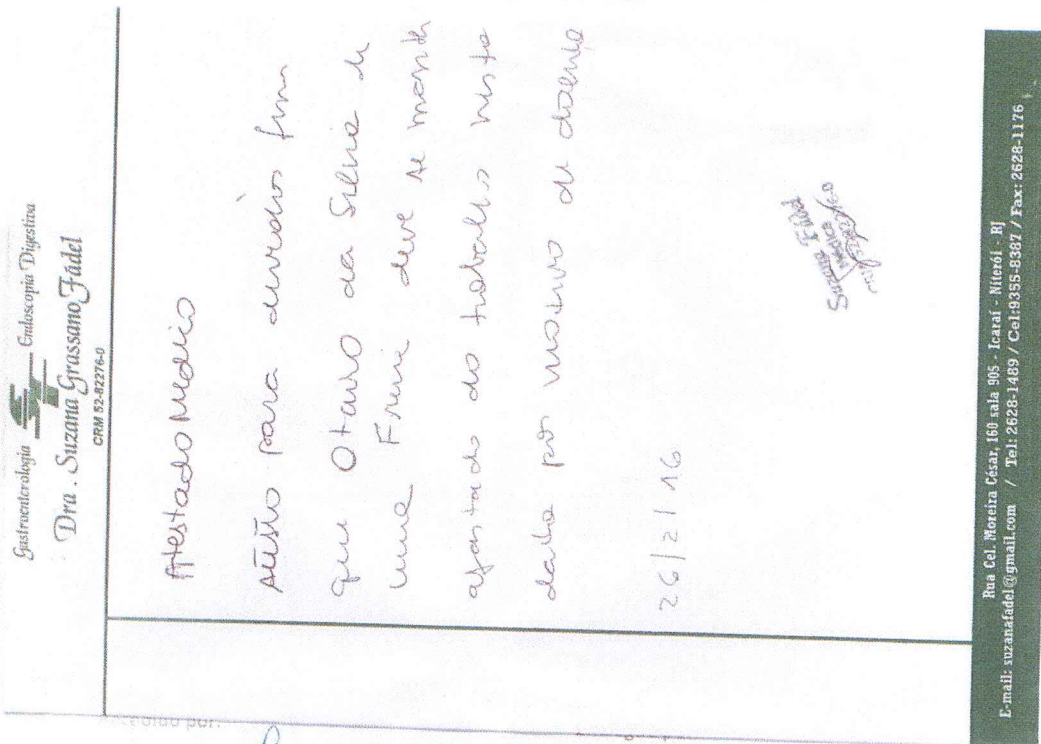 Gastroenterologia Endoscopia Digestiva
Dra. Suzana Grassano Fádel
CRM 52-82276-0
Atestado Médico
Atesto para devidos fins
que Otavio da Silva de
Freire deve se manter
afastado do trabalho nesta
data por motivo de doença
26/2/16
Suzana Fádel
Médica
Rua Cel. Moreira César, 160 sala 905 - Icaraí - Niterói - RJ
E-mail: suzanafadel@gmail.com / Tel: 2628-1489 / Cel:9355-8387 / Fax: 2628-1176